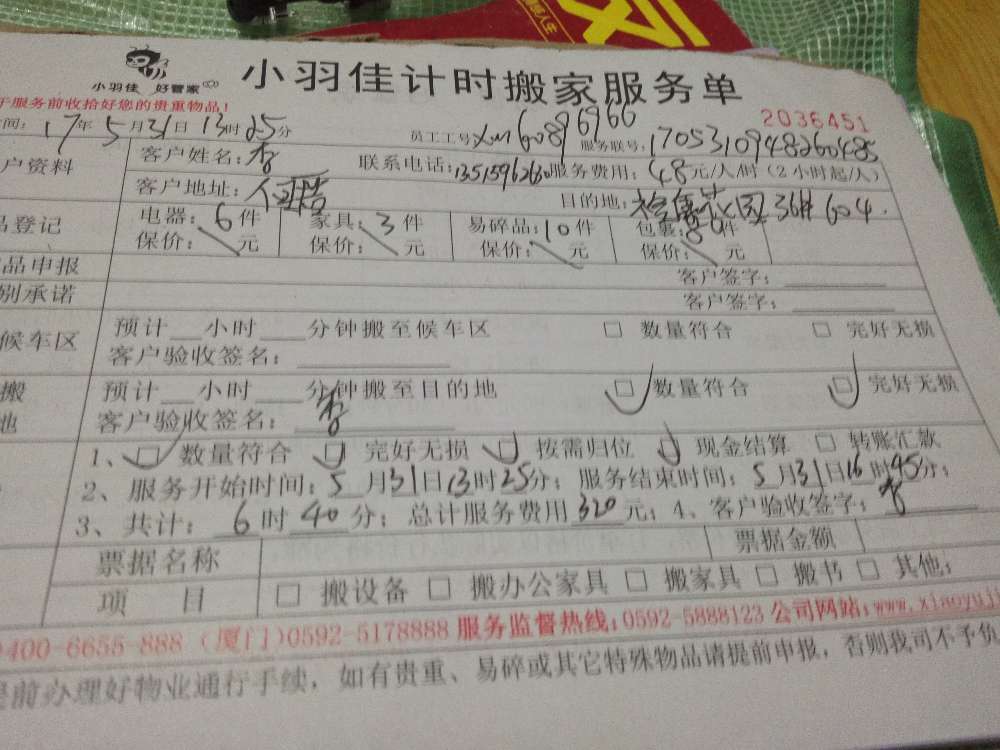 小羽佳 好管家
小羽佳计时搬家服务单
于服务前收拾好您的贵重物品!
2036451
时间: 17年5月31日13时25分 员工工号: xm60896966 服务联号: 1705310948260485
户资料 客户姓名: 李 联系电话: 服务费用: 48元/人/时 (2小时起/人)
客户地址: 目的地: 花园36# 604.
品登记 电器: 6件 家具: 3件 易碎品: 10件 包裹: 8件
保价: 元 保价: 元 保价: 元 保价: 元
品申报 客户签字:
别承诺 客户签字:
候车区 预计 小时 分钟搬至候车区 □ 数量符合 □ 完好无损
客户验收签名:
搬 预计 小时 分钟搬至目的地 □ 数量符合 □ 完好无损
地 客户验收签名: 李
1、□ 数量符合 □ 完好无损 □ 按需归位 □ 现金结算 □ 转账汇款
2、服务开始时间: 5月31日13时25分; 服务结束时间: 5月31日16时45分;
3、共计: 6时40分; 总计服务费用320元; 4、客户验收签字: 李
票据名称 票据金额
项 目 □ 搬设备 □ 搬办公家具 □ 搬家具 □ 搬书 □ 其他:
400-6655-888 (厦门)0592-5178888 服务监督热线:0592-5888123 公司网站:www.xiaoyuj
提前办理好物业通行手续, 如有贵重、易碎或其它特殊物品请提前申报, 否则我司不予负